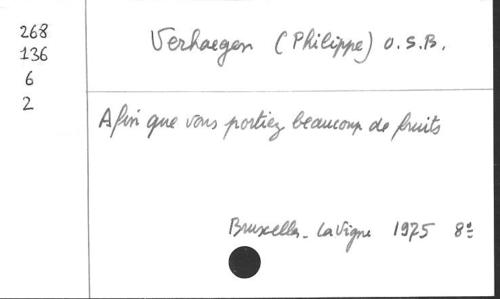 268
136
6
2
Verhaegen (Philippe) O.S.B.
Afin que vous portiez beaucoup de fruits
Bruxelles - La Vigne 1975 8°